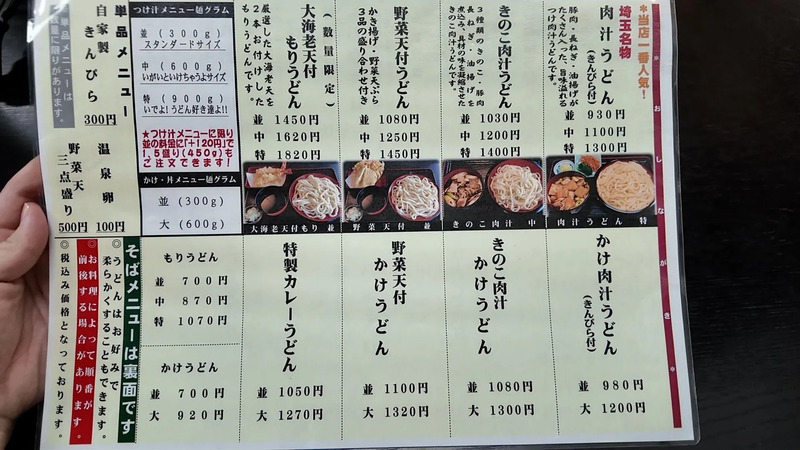 おしながき
*当店一番人気!
埼玉名物
肉汁うどん
(きんぴら付)
豚肉・長ねぎ・油揚げが
たくさん入った、旨味溢れる
つけ肉汁うどんです。
並 930円
中 1100円
特 1300円
肉汁うどん 特
きのこ肉汁うどん
3種類のきのこ・豚肉
長ねぎ・油揚げを
煮込み、具材の味を凝縮させた
きのこ肉汁うどんです。
並 1030円
中 1200円
特 1400円
きのこ肉汁 中
野菜天付うどん
かき揚げ・野菜天ぷら
3品の盛り合わせ付き
並 1080円
中 1250円
特 1450円
野菜天付 並
(数量限定)
大海老天付
もりうどん
厳選した大海老天を
2本お付けした
もりうどんです。
並 1450円
中 1620円
特 1820円
大海老天付もり 並
つけ汁メニュー麺グラム
並 (300g)
スタンダードサイズ
中 (600g)
いがいといけちゃうよサイズ
特 (900g)
いでよ!うどん好き達よ!!
★つけ汁メニューに限り
並の料金に「+120円」で
1.5盛り(450g)も
ご注文できます!
かけ・丼メニュー麺グラム
並 (300g)
大 (600g)
単品メニュー
自家製
きんぴら
300円
単品メニューは
数量に限りがあります。
温泉卵
100円
野菜天
三点盛り
500円
かけ肉汁うどん
(きんぴら付)
並 980円
大 1200円
きのこ肉汁
かけうどん
並 1080円
大 1300円
野菜天付
かけうどん
並 1100円
大 1320円
特製カレーうどん
並 1050円
大 1270円
もりうどん
並 700円
中 870円
特 1070円
かけうどん
並 700円
大 920円
そばメニューは裏面です
◎うどんはお好みで
柔らかくすることもできます。
◎お料理によって順番が
前後する場合があります。
◎税込み価格となっております。